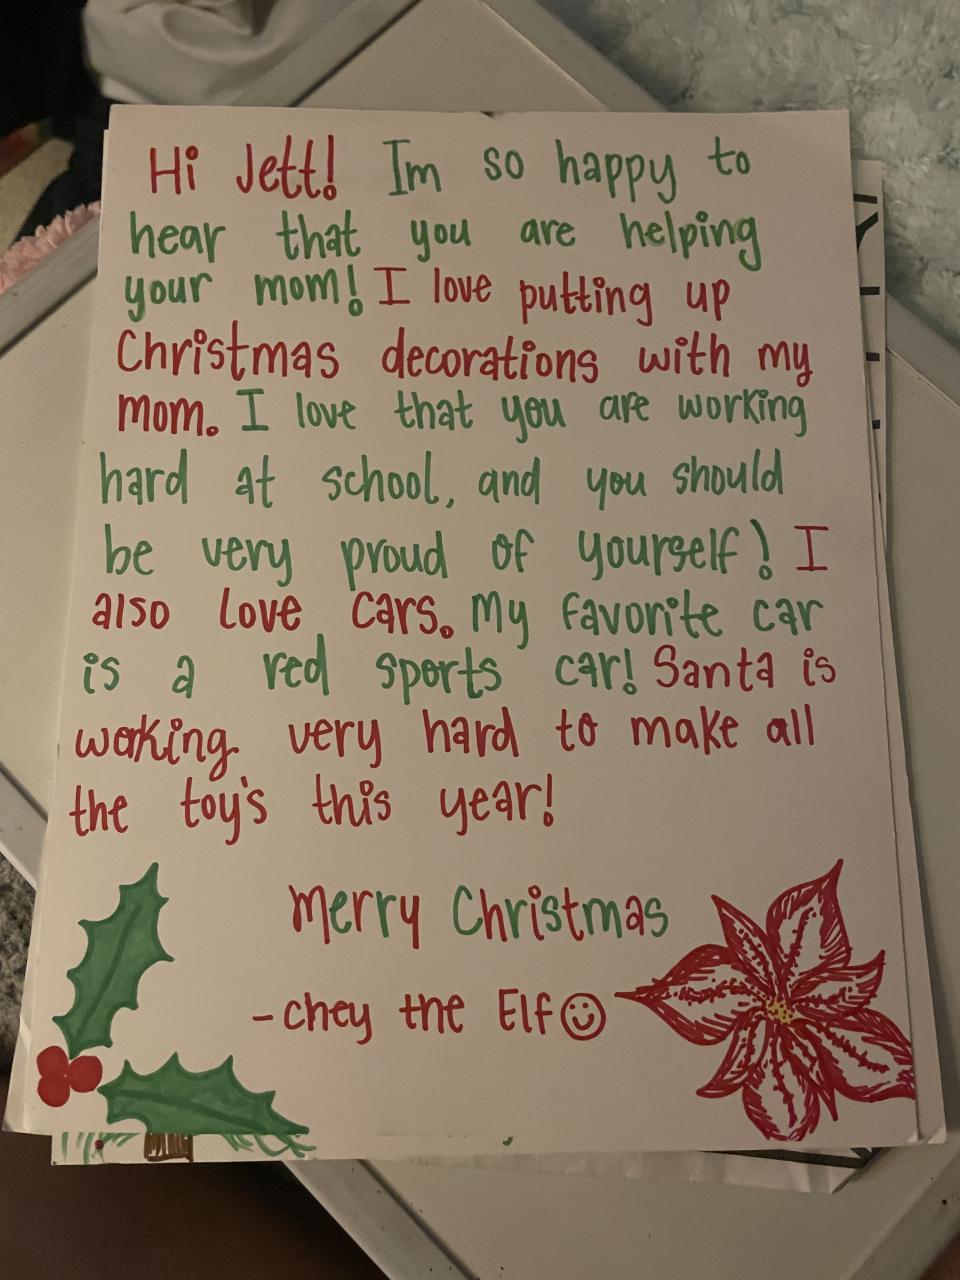 Hi Jett! Im so happy to
hear that you are helping
your mom! I love putting up
Christmas decorations with my
mom. I love that you are working
hard at school, and you should
be very proud of yourself! I
also love cars. My favorite car
is a red sports car! Santa is
working very hard to make all
the toy's this year!
Merry Christmas
-chey the Elf☺